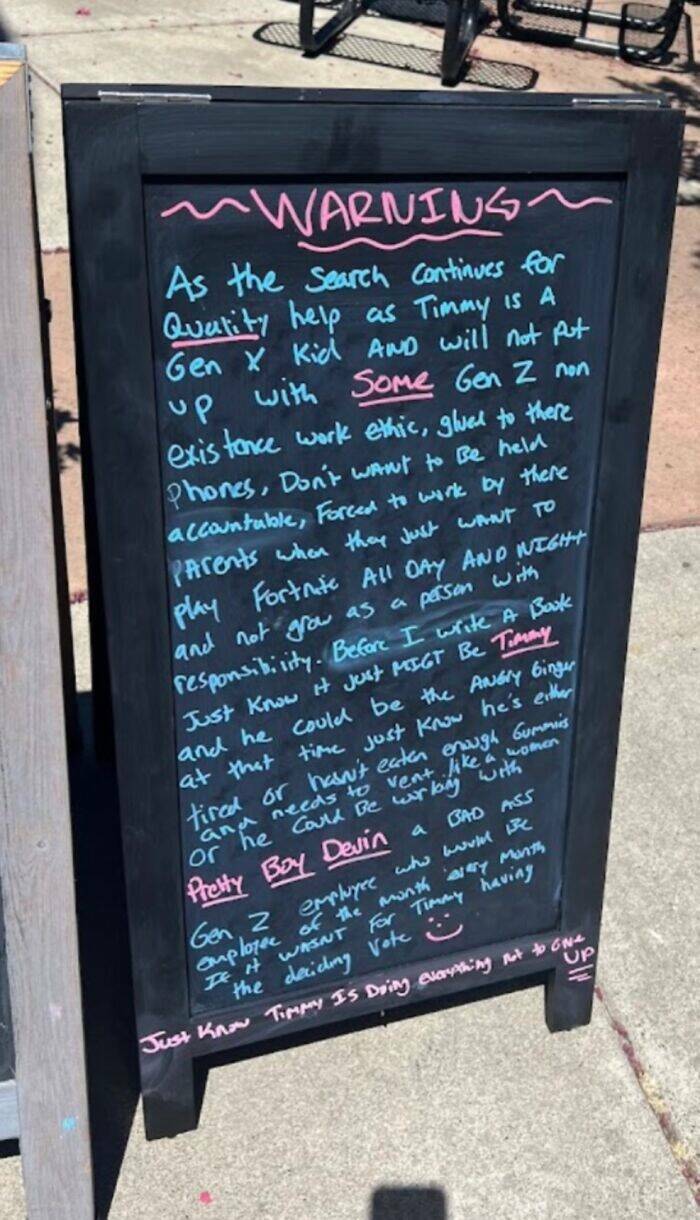 WARNING
As the Search Continues for
Quality help as Timmy is A
Gen X Kid AND will not put
up with Some Gen Z non
existance work ethic, glued to there
Phones, Don't want to Be held
accountable, Forced to work by there
PArents when they Just want TO
play Fortnite All DAY AND NIGHT
and not grow as a person with
responsibility. Before I write A Book
Just Know it Just MIGT Be Timmy
and he could be the Angry Ginger
at that time Just Know he's either
tired or hasn't eaten enough Gummies
and needs to vent like a women
or he Could Be working with
Pretty Boy Devin a BAD ASS
Gen Z employee who would Be
employee of the month every Month
If it wasnt For Timmy having
the deciding Vote
Just Know Timmy Is Doing everything not to Give
UP